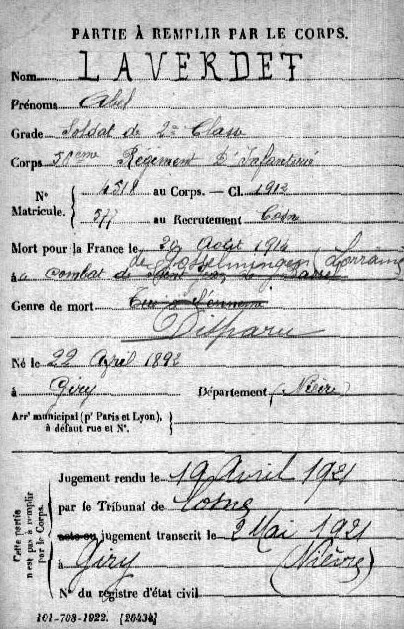 PARTIE À REMPLIR PAR LE CORPS.
Nom LAVERDET
Prénoms Abel
Grade Soldat de 2e Classe
Corps Régiment D'Infanterie
4518 au Corps. — Cl. 1912
N° Matricule.
577 au Recrutement Cosne
Mort pour la France le 20 Août 1914
de Gosselmingen (Lorraine)
à combat de
Genre de mort Tué à l'ennemi
Disparu
Né le 22 April 1892
à Giry Département (Nièvre)
Arrt municipal (pr Paris et Lyon),
à défaut rue et N°.
Cette partie
n'est pas à remplir
par le Corps.
Jugement rendu le 19 Avril 1921
par le Tribunal de Cosne
acte ou jugement transcrit le 2 Mai 1921
à Giry (Nièvre)
N° du registre d'état civil
101-708-1922. [26434]